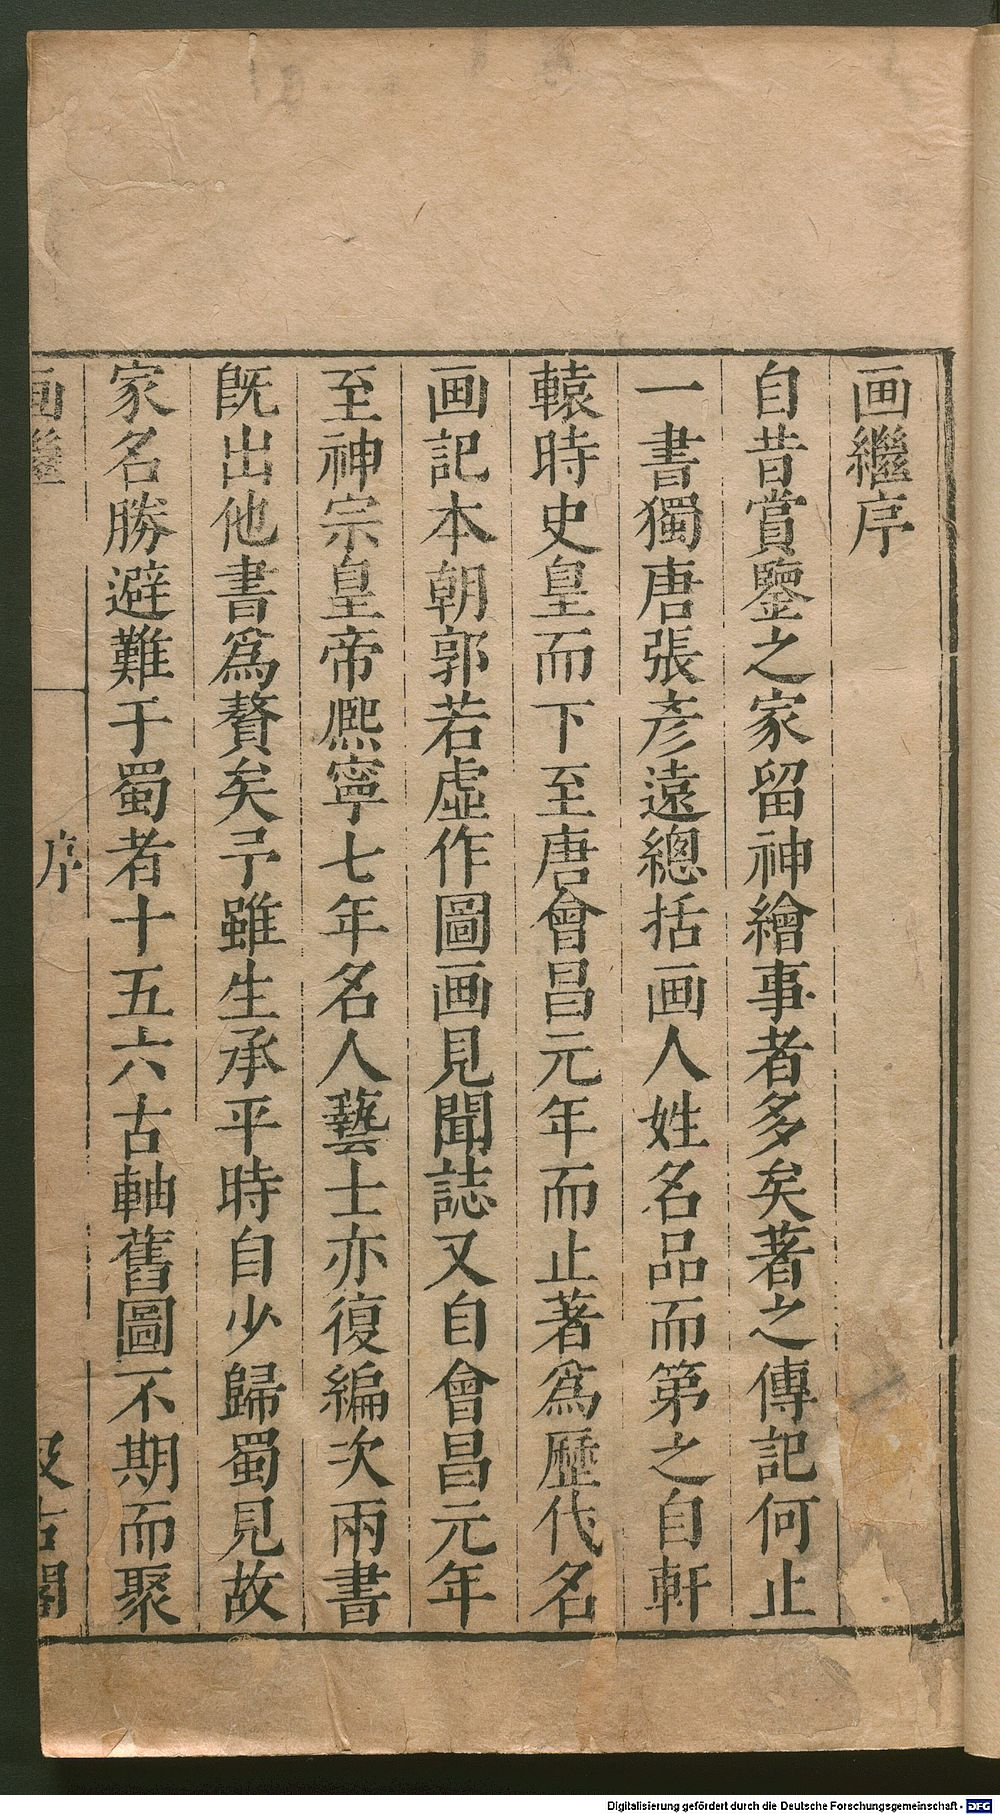 画繼序
自昔賞鑒之家留神繪事者多矣著之傳記何止
一書獨唐張彥遠總括画人姓名品而第之自軒
轅時史皇而下至唐會昌元年而止著爲歷代名
画記本朝郭若虛作圖画見聞誌又自會昌元年
至神宗皇帝熈寧七年名人藝士亦復編次兩書
旣出他書爲贅矣予雖生承平時自少歸蜀見故
家名勝避難于蜀者十五六古軸舊圖不期而聚
画繼 序 汲古閣
Digitalisierung gefördert durch die Deutsche Forschungsgemeinschaft - DFG